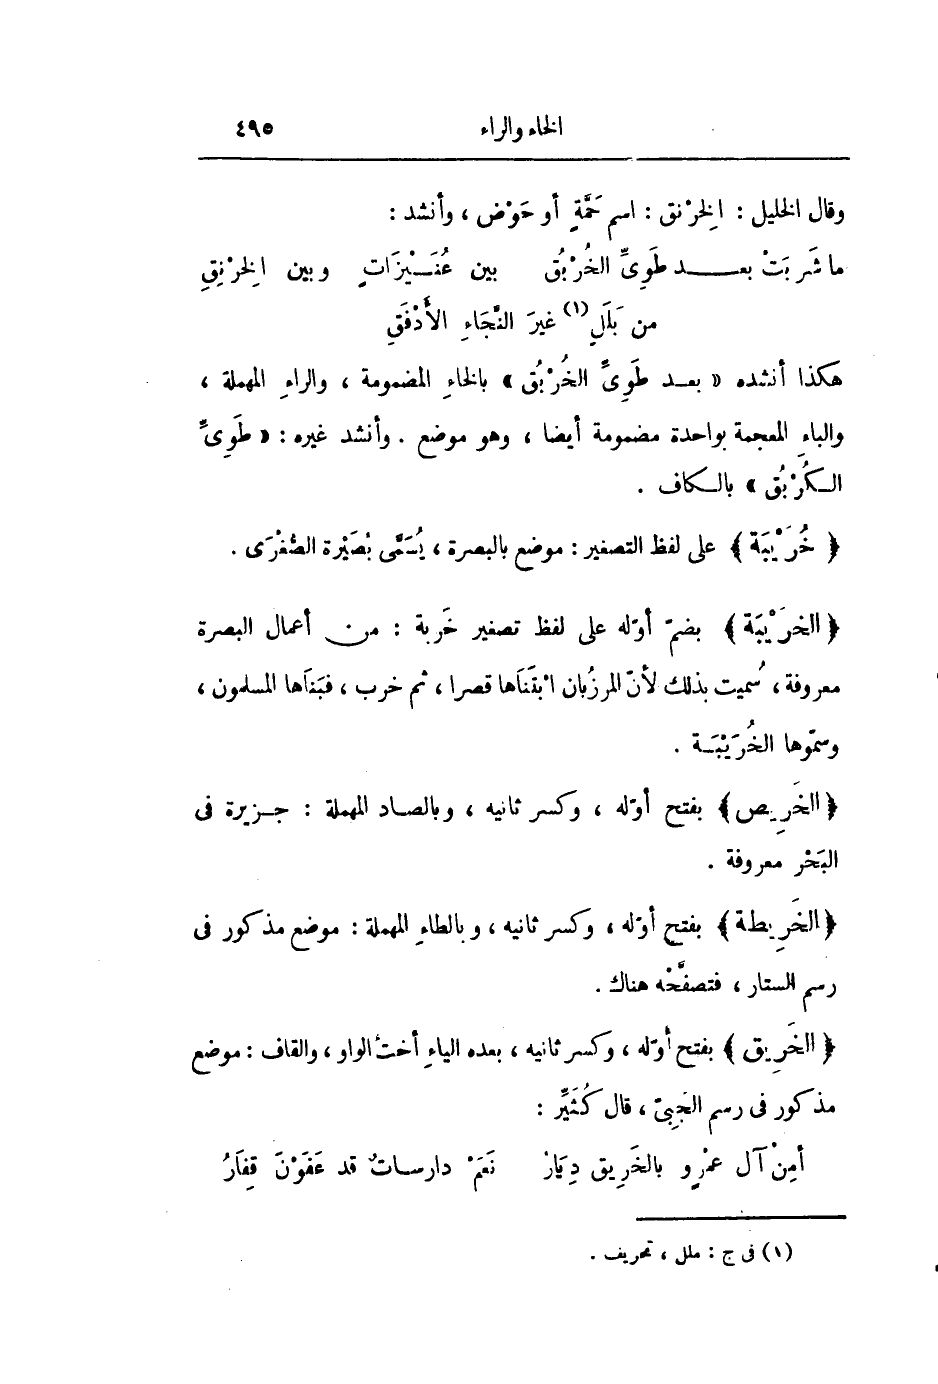 الخاء والراء ٤٩٥
وقال الخليل : الِخرْنق : اسم حَمَّةٍ أو حَوْض ، وأنشد :
ما شَربَتْ بعــد طَوِىِّ الخُرْبُق بين عُنَــيْزَاتٍ وبين الِخرْنِقِ
من بَلَلِ (١) غيرَ النَّجَاءِ الأَدْفَقِ
هكذا أنشده « بعد طَوِىِّ الخُرْبُق » بالخاءِ المضمومة ، والراءِ المهملة ،
والباءِ المعجمة بواحدة مضمومة أيضا ، وهو موضع . وأنشد غيره : « طَوِىِّ
الـكُرْبُق » بالـكاف .
﴿ خُرَيْبَة ﴾ على لفظ التصغير : موضع بالبصرة ، يُسَمَّى بُصَيْرة الصُّغْرَى .
﴿ الخرَيْبَة ﴾ بضمّ أوّله على لفظ تصغير خَربة : من أعمال البصرة
معروفة ، سُميت بذلك لأنّ المرزُبان ابْتَنَاها قصرا ، ثم خرب ، فبَناَها المسلمون ،
وسمّوها الخُرَيْبَـة .
﴿ الخَرِيص ﴾ بفتح أوّله ، وكسر ثانيه ، وبالصـاد المهملة : جـزيرة فى
البَحْر معروفة .
﴿ الخَرِيطة ﴾ بفتح أوّله ، وكسر ثانيه ، وبالطاءِ المهملة : موضع مذكور فى
رسم الستار ، فتصفَّحْه هناك .
﴿ الخَرِيق ﴾ بفتح أوّله ، وكسر ثانيه ، بعده الياءِ أختُ الواو ، والقاف : موضع
مذكور فى رسم الخَبِىّ ، قال كُثَيِّر :
أمِنْ آل عمْرٍو بالخَرِيق دِيَارُ نَعَمْ دارسـاتٌ قد عَفَوْنَ قِفَارُ
(١) فى ج : ملل ، تحريف .